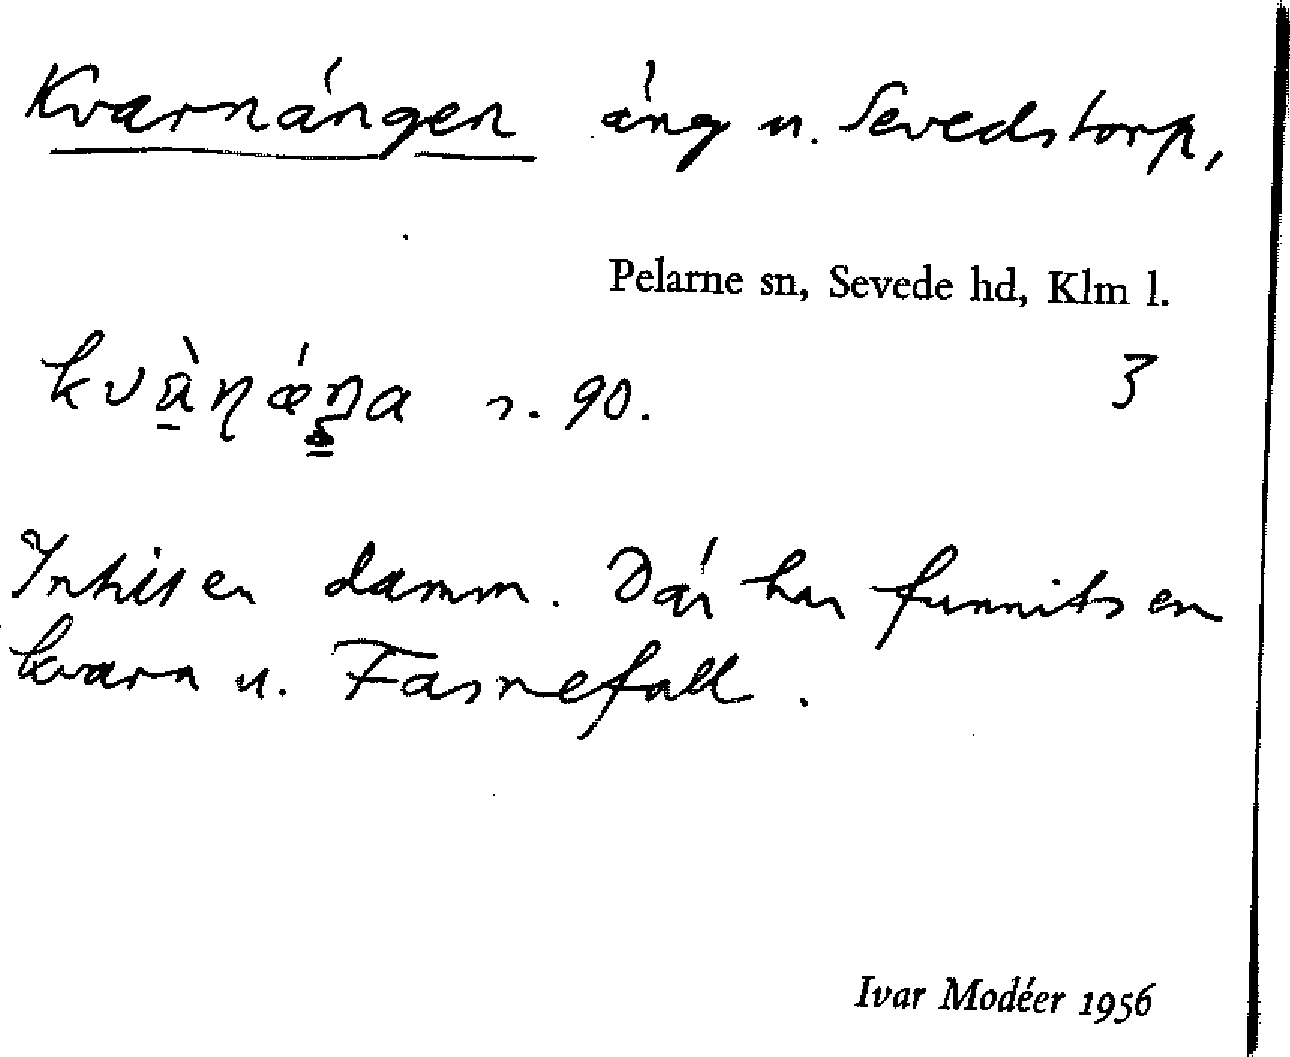 Kvarnängen äng u. Sevedstorp,
Pelarne sn, Sevede hd, Klm l.
r. 90. 3
Intill en damm. Där har funnits en
kvarn u. Fasnefall.
Ivar Modéer 1956